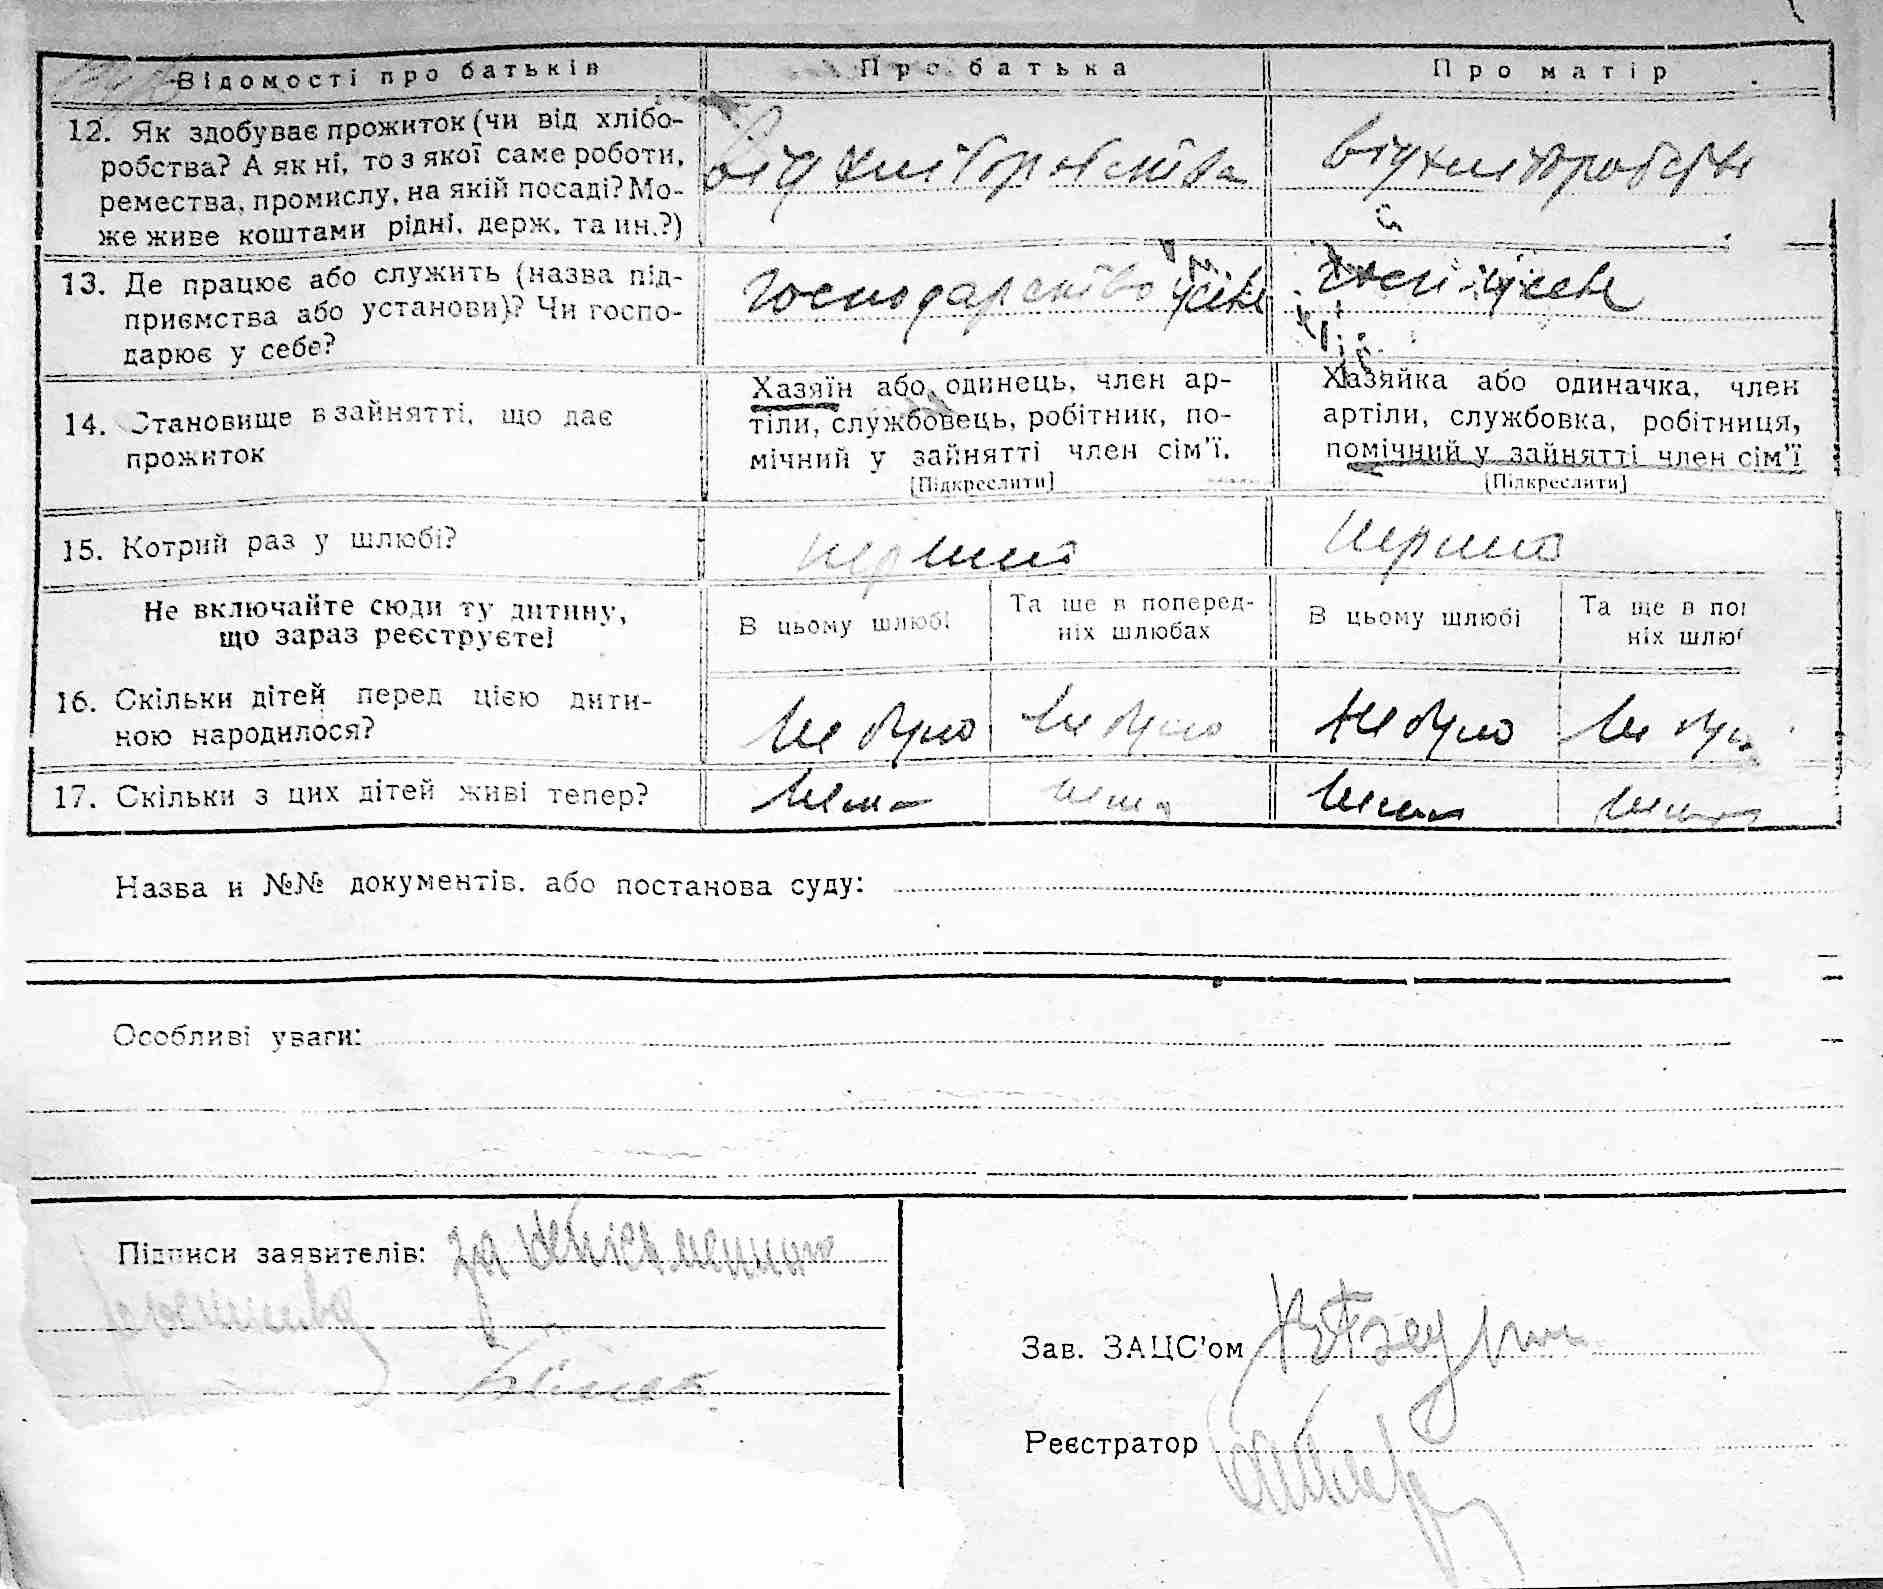 Відомості про батьків Про батька Про матір
12. Як здобуває прожиток (чи від хлібо-
робства? А як ні, то з якої саме роботи,
ремества, промислу, на якій посаді? Мо-
же живе коштами рідні, держ. та ин.?)
від хліборобства від хліборобства
13. Де працює або служить (назва під-
приємства або установи)? Чи госпо-
дарює у себе?
господарство у себе у себе
14. Становище в зайнятті, що дає
прожиток
Хазяїн або одинець, член ар-
тіли, службовець, робітник, по-
мічний у зайнятті член сім'ї.
[Підкреслити]
Хазяйка або одиначка, член
артіли, службовка, робітниця,
помічний у зайнятті член сім'ї
[Підкреслити]
15. Котрий раз у шлюбі?
перший перший
Не включайте сюди ту дитину,
що зараз реєструєте!
В цьому шлюбі
Та ще в поперед-
ніх шлюбах
В цьому шлюбі
Та ще в по
ніх шлю
16. Скільки дітей перед цією дити-
ною народилося?
не було не було не було не було
17. Скільки з цих дітей живі тепер?
нема нема нема нема
Назва и №№ документів. або постанова суду:
Особливі уваги:
Підписи заявителів: за неписьменного
Зав. ЗАЦС'ом
Реєстратор